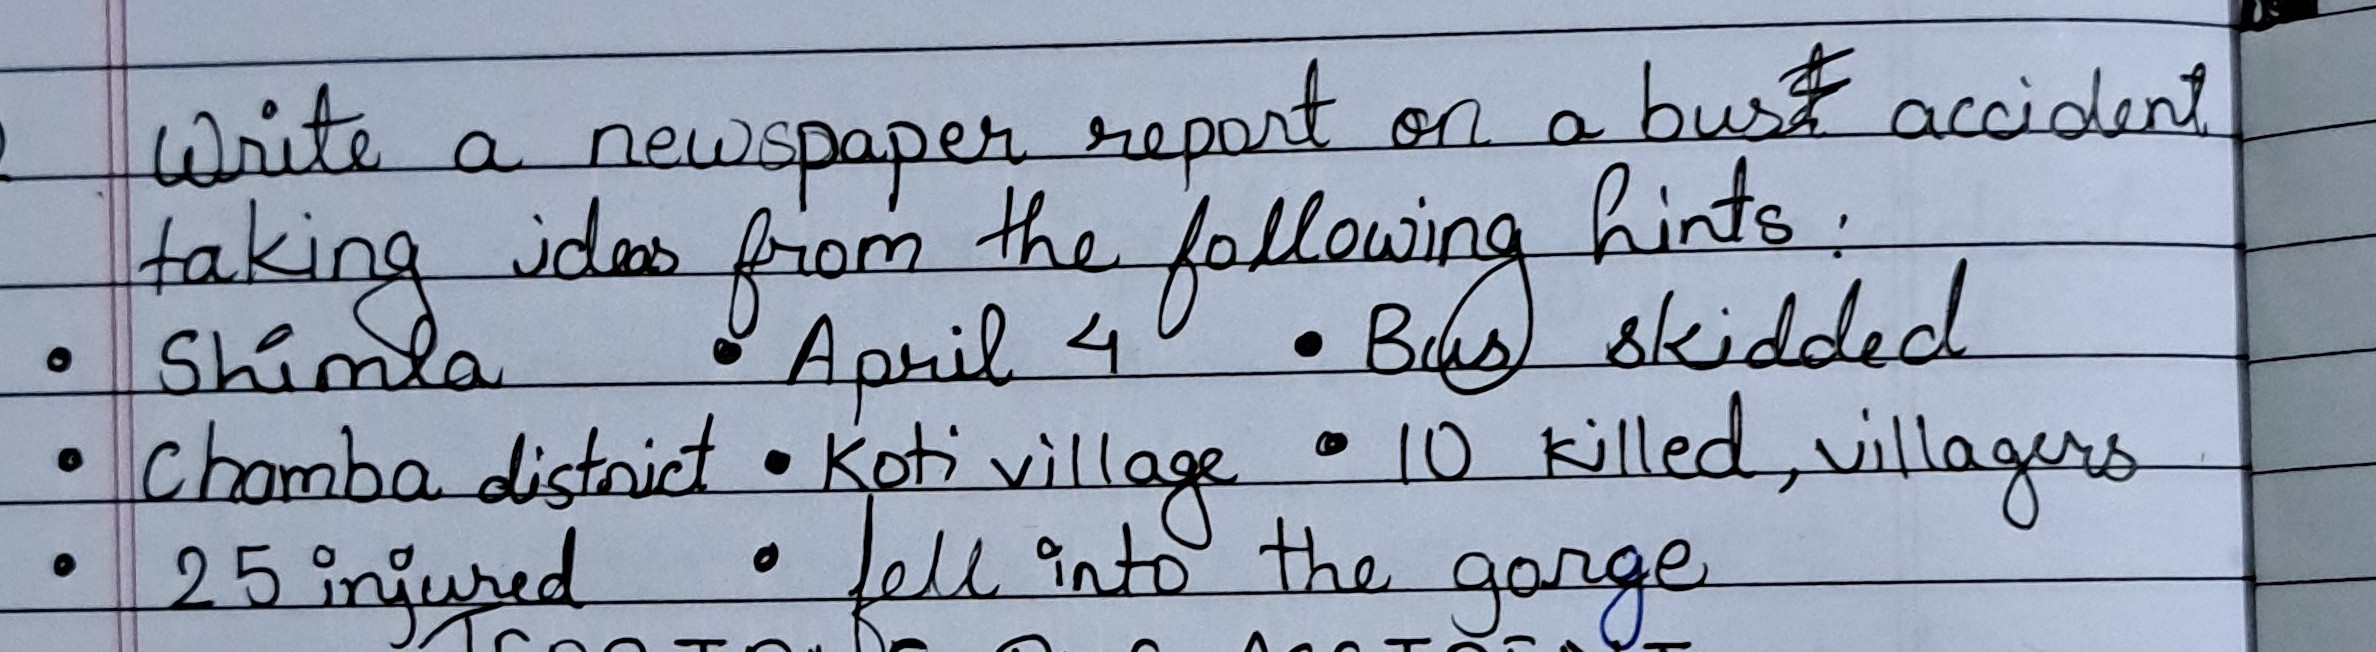 Write a newspaper report on a bus accident
taking ideas from the following hints:
• Shimla • April 4 • Bus skidded
• Chamba district • Koti village • 10 killed, villagers
• 25 injured • fell into the gorge